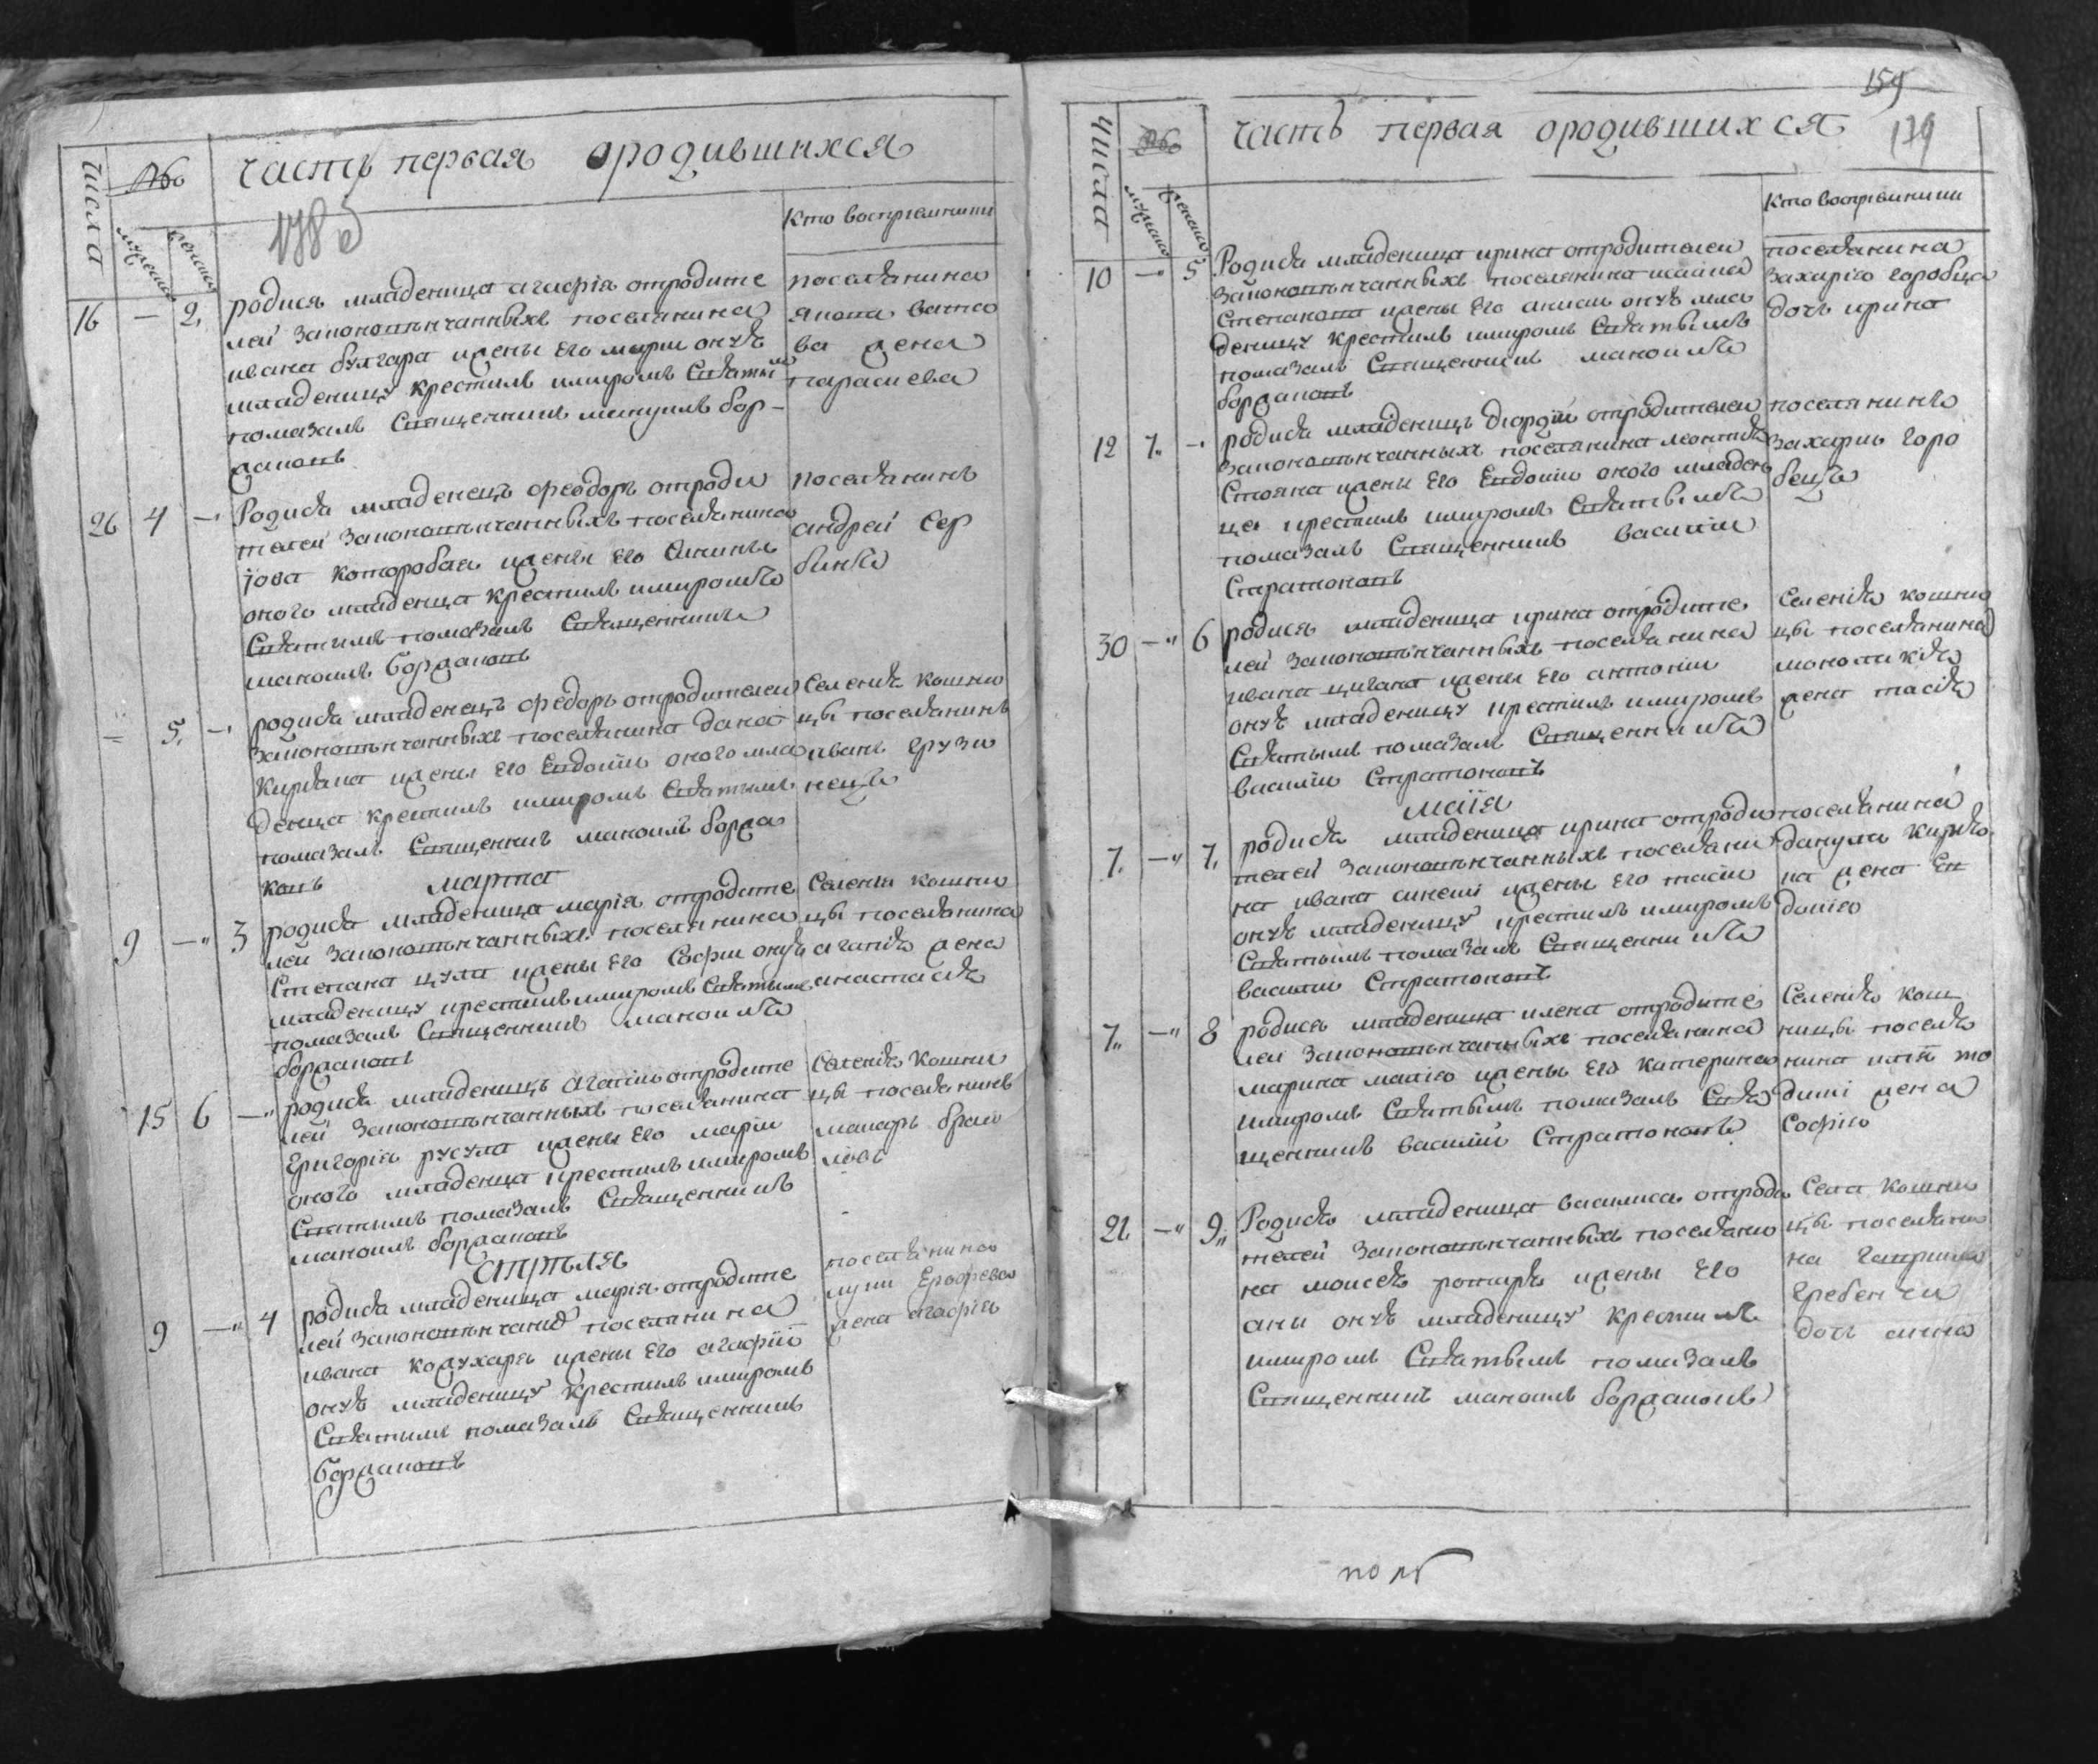 числа
№
часть первая ородившихся
178 об
мужеска
женска
кто воспріемники
16 — 2.
родися младеница агафія отродите
лей законовѣнчанныхъ поселянина
ивана булгара и жены его марии онуѣ
младеницу крестилъ имиромъ Святы
помазалъ Священникъ мануилъ бор-
жаковъ
поселянина
якова
ва жена
параскева
26 4 —
Родися младенецъ феодоръ отроди
телей законовѣнчанныхъ поселянина
іова которобая и жены его
оного младенца крестилъ имиромъ
Святымъ помазалъ Священникъ
маноилъ боржаковъ
поселянинъ
андрей Сер
бинъ
— 5. —
родися младенецъ федоръ отродителей
законовѣнчанныхъ поселянина
Киріана и жены его Евдокіи оного мла
денца крестилъ имиромъ Святымъ
помазалъ Священникъ маноилъ боржа
ковъ
Селенія кошни
цы поселянинъ
иванъ грузи
нецъ
марта
9 — 3
родися младеница марія отродите
лей законовѣнчанныхъ поселянина
Степана цуля и жены его Софии онуѣ
младеницу крестилъ имиромъ Святымъ
помазалъ Священникъ маноилъ
боржаковъ
Селенія кошни
цы поселянина
агапія жена
анастасія
15 6 —
родися младенецъ агапіи отродите
лей законовѣнчанныхъ поселянина
Григорія русула и жены его маріи
оного младенца крестилъ имиромъ
Святымъ помазалъ Священникъ
маноилъ боржаковъ
Селенія кошни
цы поселянинъ
макаръ
апрѣля
9 — 4
родися младеница марія отродите
лей законовѣнчаныхъ поселянина
ивана кожухаря и жены его агафіи
онуѣ младеницу крестилъ имиромъ
Святымъ помазалъ Священникъ
боржаковъ
поселянина
луки Ерофеева
жена агафія
159
179
числа
№
часть первая ородившихся
мужеска
женска
кто воспріемники
10 — 5
Родися младеница ирина отродителей
законовѣнчанныхъ поселянина
Степанова и жены его онуѣ мла
деницу крестилъ имиромъ Святымъ
помазалъ Священникъ маноилъ
боржаковъ
поселянина
Захарію горобца
дочь ирина
12 7. —
родися младенецъ отродителей
законовѣнчанныхъ поселянина леонтія
Стояна и жены его Евдокіи оного младен
ца крестилъ имиромъ Святымъ
помазалъ Священникъ василіи
Стратоновъ
поселянинъ
захарии горо
бецъ
30 — 6
родися младеница ирина отродите
лей законовѣнчанныхъ поселянина
ивана и жены его антоніи
онуѣ младеницу крестилъ имиромъ
Святымъ помазалъ Священникъ
василіи Стратоновъ
Селенія кошни
цы поселянина
жена тасія
маія
7. — 7.
родися младеница ирина отроди
телей законовѣнчанныхъ поселяни
на ивана и жены его тасіи
онуѣ младеницу крестилъ имиромъ
Святымъ помазалъ Священникъ
василіи Стратоновъ
поселянина
данула Кирія
на жена Ев
докію
7. — 8
родися младеница илена отродите
лей законовѣнчанныхъ поселянина
марина и жены его катерина
имиромъ Святымъ помазалъ Свя
щенникъ василіи Стратоновъ
Селенія кош
ницы поселя
нина то
жена
Софію
21 — 9.
Родися младеница василиса отроди
телей законовѣнчанныхъ поселяни
на моисея и жены его
ани онуѣ младеницу крестилъ
имиромъ Святымъ помазалъ
Священникъ маноилъ боржаковъ
Села кошни
цы поселяни
на гаврила
гребенчи
дочь анна